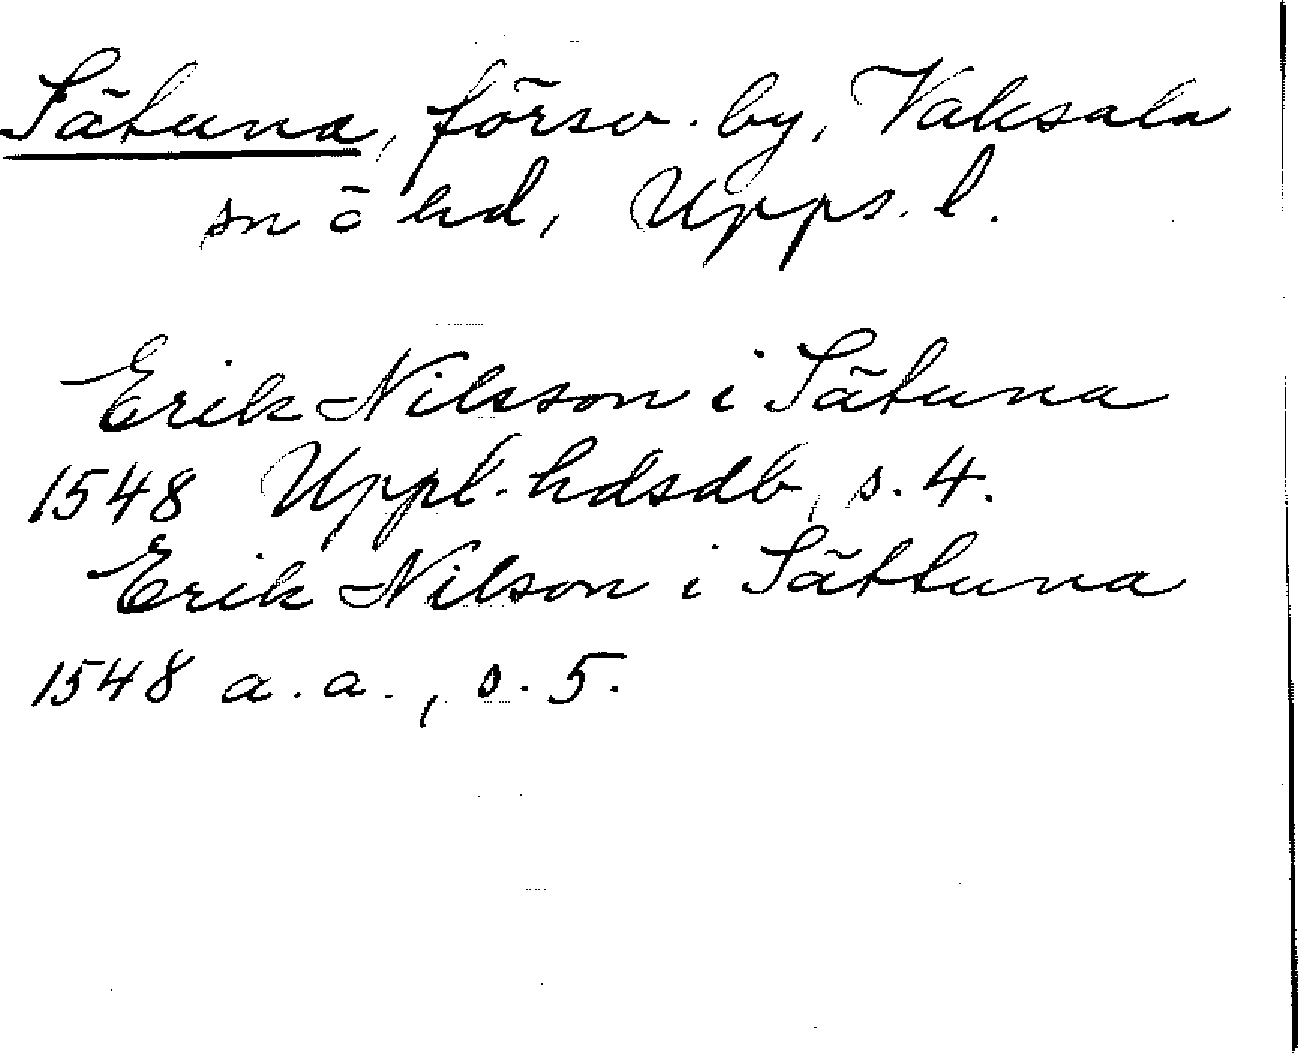 Sätuna, försv. by, Vaksala
sn o hd, Upps. l.
Erik Nilsson i Sätuna
1548 Uppl. hdsdb, s. 4.
Erik Nilson i Sättuna
1548 a. a., s. 5.